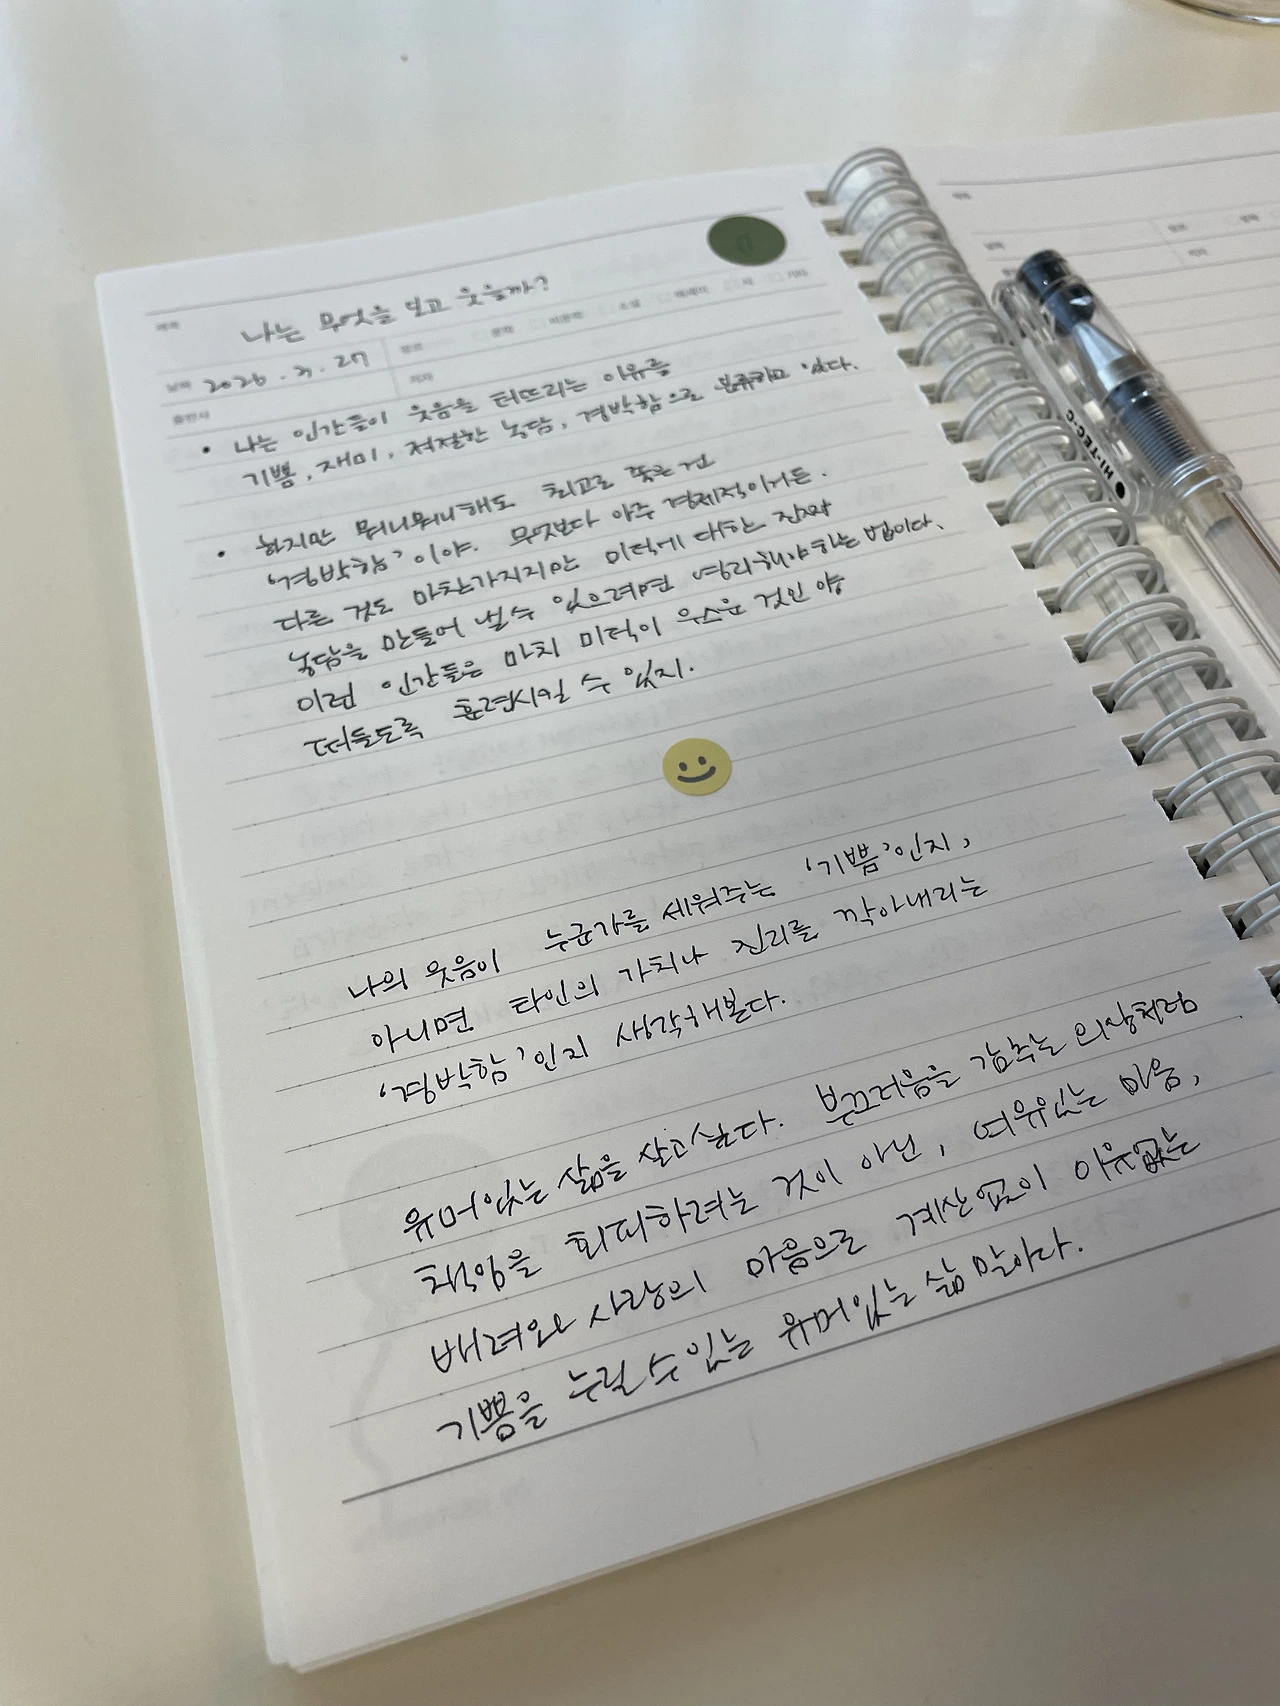 제목 나는 무엇을 보고 웃을까?
날짜 2026. 3. 27 분류 문학 비문학 소설 에세이 시 기타
출판사 저자
• 나는 인간들이 웃음을 터뜨리는 이유를
기쁨, 재미, 적절한 농담, 경박함으로 분류하고 있다.
• 하지만 뭐니뭐니해도 최고로 좋은 건
'경박함'이야. 무엇보다 아주 경제적이거든.
다른 것도 마찬가지지만 미덕에 대한 진짜
농담을 만들어 낼 수 있으려면 영리해야하는 법이다.
이런 인간들은 마치 미덕이 우스운 것인 양
떠들도록 훈련시킬 수 있지.
나의 웃음이 누군가를 세워주는 '기쁨'인지,
아니면 타인의 가치나 진리를 깍아내리는
'경박함'인지 생각해본다.
유머있는 삶을 살고싶다. 부끄러움을 감추는 의상처럼
책임을 회피하려는 것이 아닌, 여유있는 마음,
배려와 사랑의 마음으로 계산없이 이유없는
기쁨을 누릴 수 있는 유머있는 삶 말이다.
HI-TEC-C